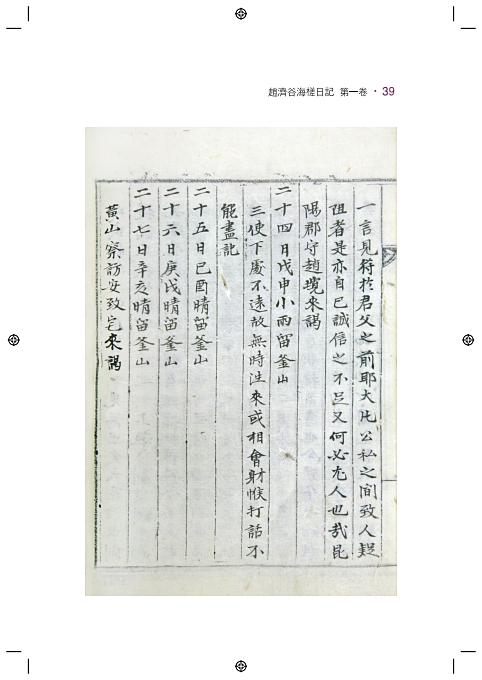 趙濟谷海槎日記 第一卷 · 39
一言見符於君父之前耶大凡公私之間致人疑
阻者是亦自己誠信之不足又何必尤人也哉昆
陽郡守趙瑍來謁
二十四日戊申小雨留釜山
三使下處不遠故無時往來或相會射帿打話不
能盡記
二十五日己酉晴留釜山
二十六日庚戌晴留釜山
二十七日辛亥晴留釜山
黃山察訪安致宅來謁